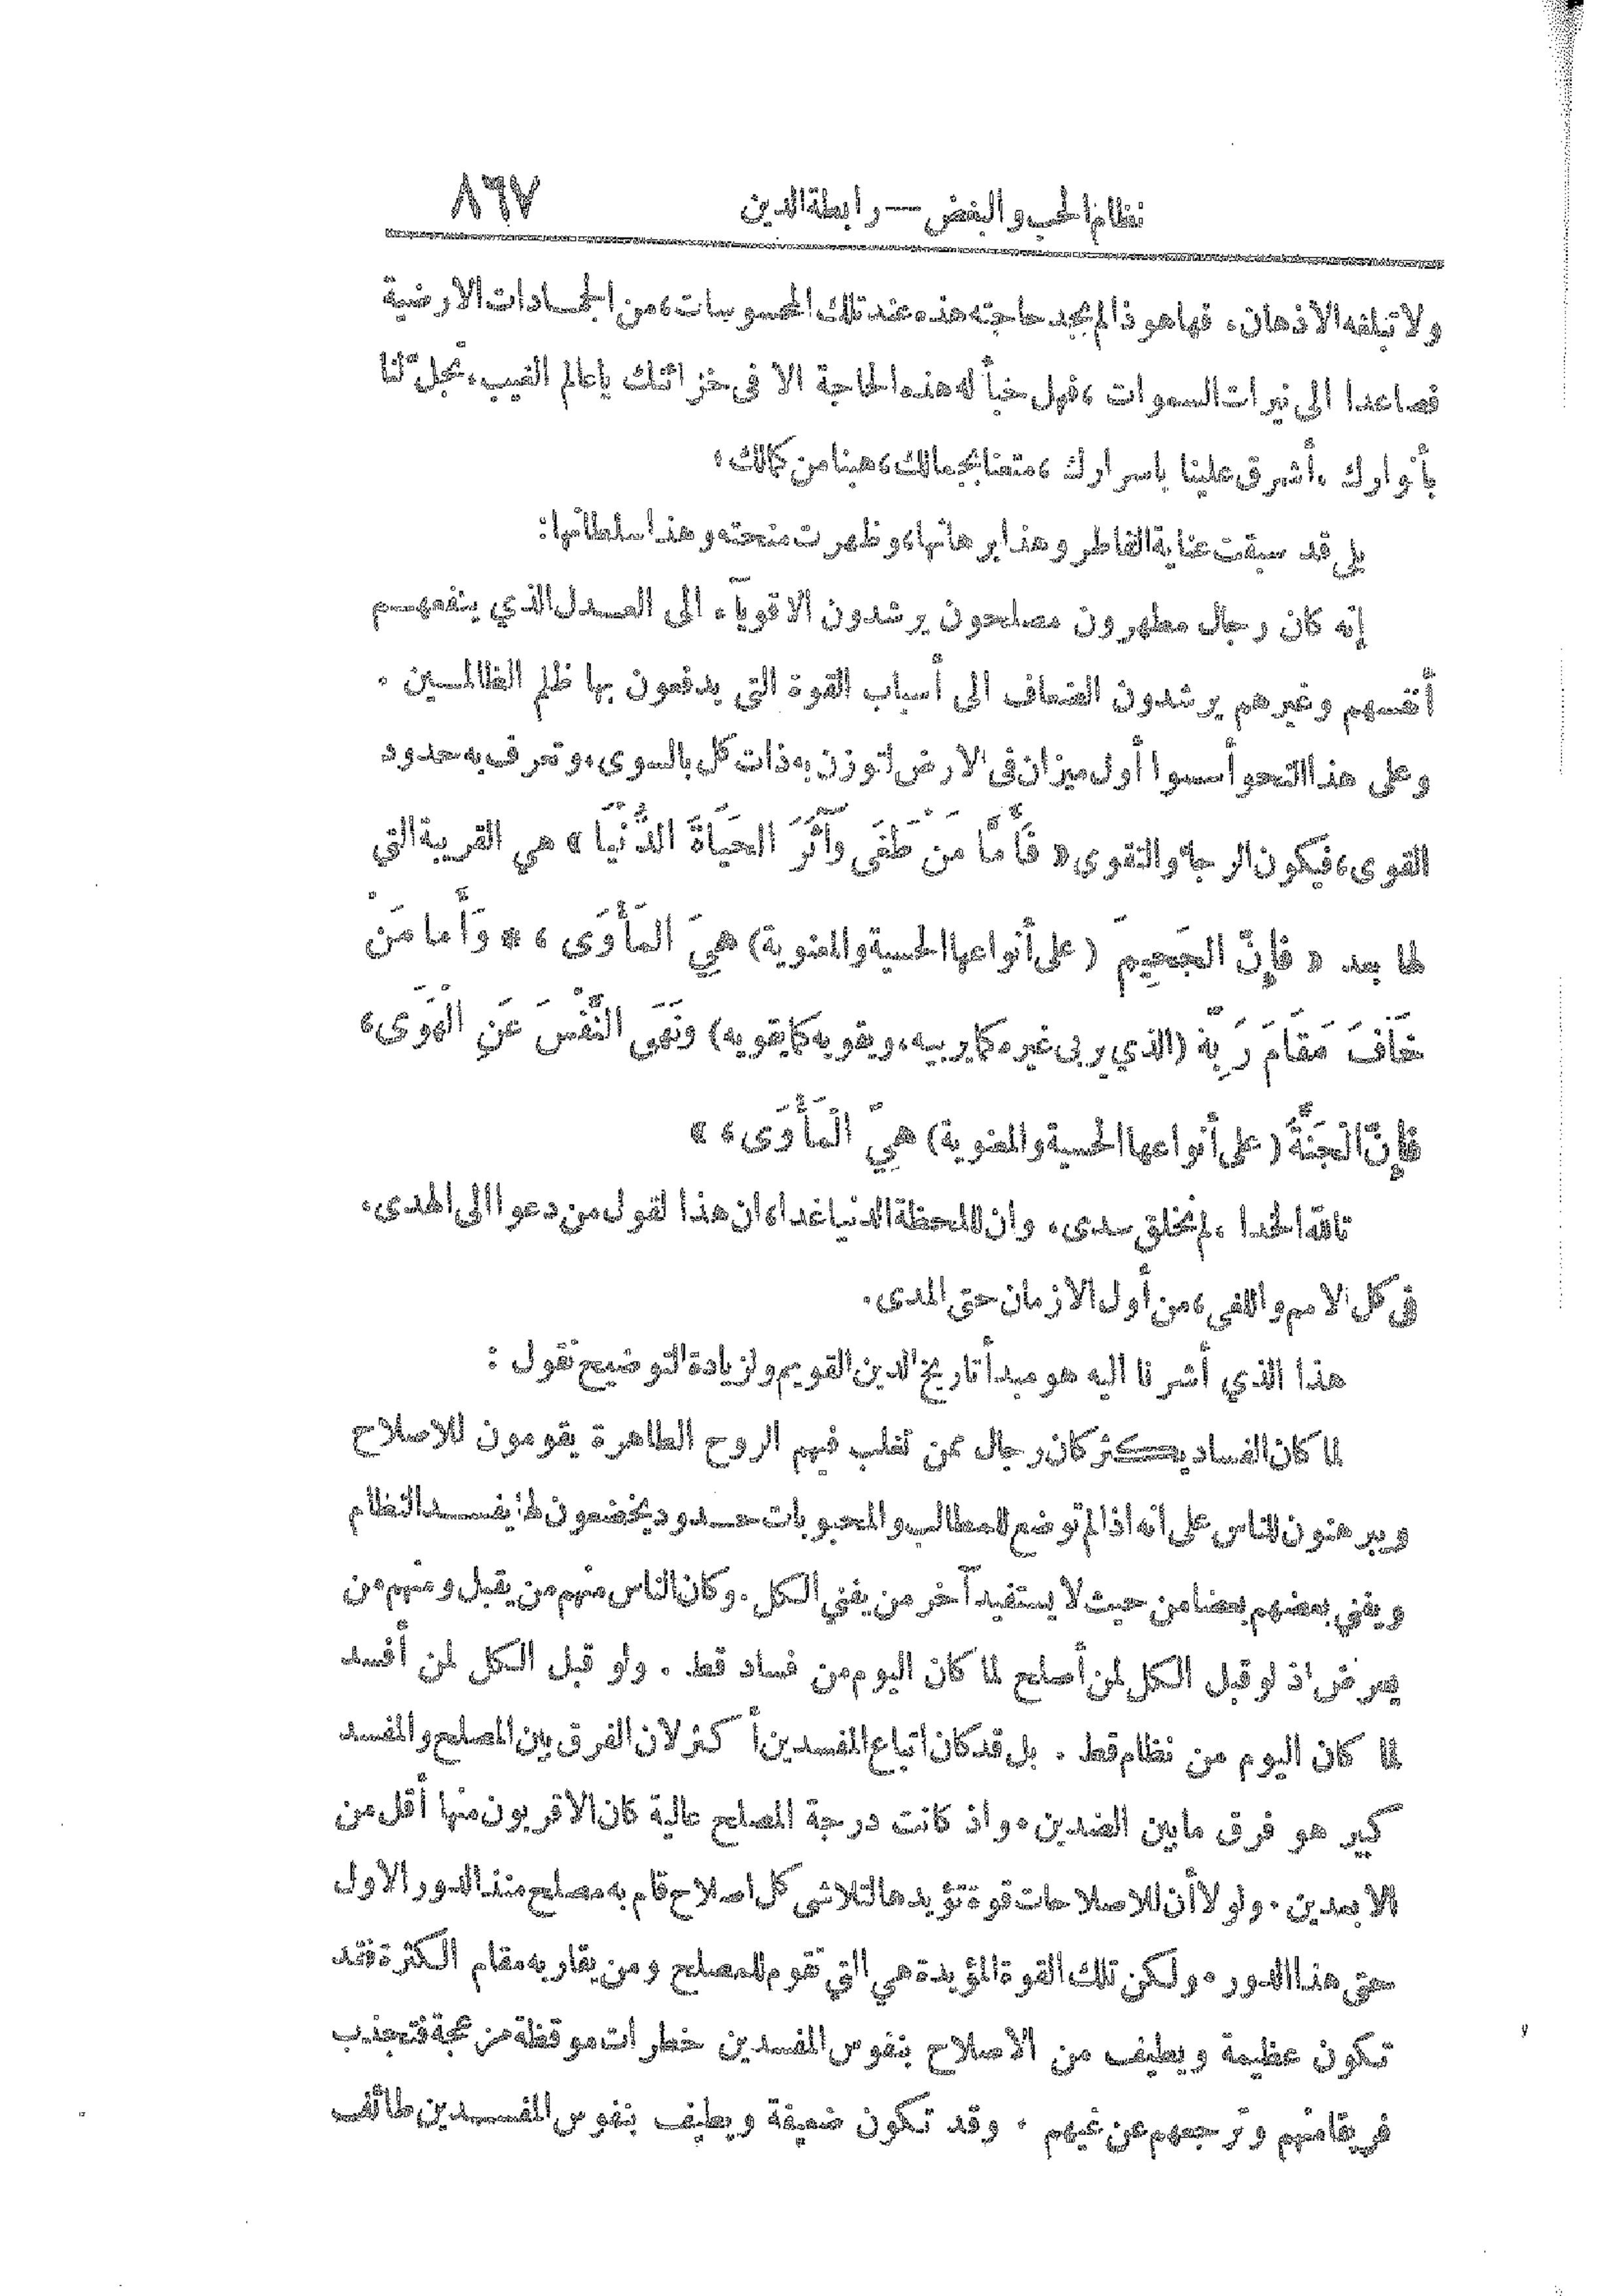 نظام الحب والبغض — رابطة الدين ٨٦٧
ولا تبلغه الاذهان، فها هو ذا لم يجد حاجته هذه عند تلك المحسوسات، من الجمادات الارضية
فصاعدا الى نيرات السموات ، فهل خبأ له هذه الحاجة الا فى خزائنك يا عالم الغيب ، تجلّ لنا
بأنوارك ، أشرق علينا باسرارك ، متعنا بجمالك ، هبنا من كمالك ،
بلى قد سبقت عناية الفاطر وهذا برهانها، وظهرت منحته وهذا سلطانها:
إنه كان رجال مطهرون مصلحون يرشدون الاقويآء الى العدل الذي ينفعهم
أنفسهم وغيرهم يرشدون الضعاف الى أسباب القوة التى يدفعون بها ظلم الظالمين .
وعلى هذا النحو أسسوا أول ميزان فى الارض لتوزن به ذات كل بالسوى، وتعرف به حدود
القوى، فيكون الرجاء والتقوى « فَأَمَّا مَنْ طَغَى وَآثَرَ الحَيَاةَ الدُّنْيَا » هي القريبة التي
لما بعد « فَإِنَّ الجَحِيمَ ( على أنواعها الحسية والمعنوية) هِيَ المَأْوَى ، * وَأَما مَنْ
خَافَ مَقَامَ رَبِّهِ (الذي يربى غيره كما يربيه، ويقويه كما يقويه) وَنَهَى النَّفْسَ عَنِ الْهَوَى،
فَإِنَّ الْجَنَّةَ ( على أنواعها الحسية والمعنوية) هِيَ الْمَأْوَى، »
تالله الحدا ، لم يخلق سدى، وان للحظة الدنيا غدا، ان هذا لقول من دعوا الى الهدى،
فى كل الامم واللغى، من أول الازمان حتى المدى.
هذا الذي أشرنا اليه هو مبدأ تاريخ الدين القويم ولزيادة التوضيح نقول :
لما كان الفساد يكثر كان رجال ممن تغلب فيهم الروح الطاهرة يقومون للاصلاح
ويبرهنون للناس على أنه اذا لم توضع للمطالب والمحبوبات حدود يخضعون لها يفسد النظام
ويفني بعضهم بعضا من حيث لا يستفيد آخر من يفني الكل. وكان الناس منهم من يقبل ومنهم من
يعرض اذ لو قبل الكل لمن أصلح لما كان اليوم من فساد قط . ولو قبل الكل لمن أفسد
لما كان اليوم من نظام قط . بل قد كان اتباع المفسدين أكثر لان الفرق بين المصلح والمفسد
كبير هو فرق ما بين الضدين، واذ كانت درجة المصلح عالية كان الاقربون منها أقل من
الابعدين . ولولا أن للاصلاحات قوة تؤيدها لتلاشى كل اصلاح قام به مصلح منذ الدور الاول
حتى هذا الدور ، ولكن تلك القوة المؤيدة هي التي تقوم للمصلح ومن يقاربه مقام الكثرة فقد
تكون عظيمة ويطيف من الاصلاح بنفوس المفسدين خطرات موقظة مزعجة فتجذب
فريقا منهم وترجعهم عن غيهم . وقد تكون ضعيفة ويطيف بنفوس المفسدين طائف